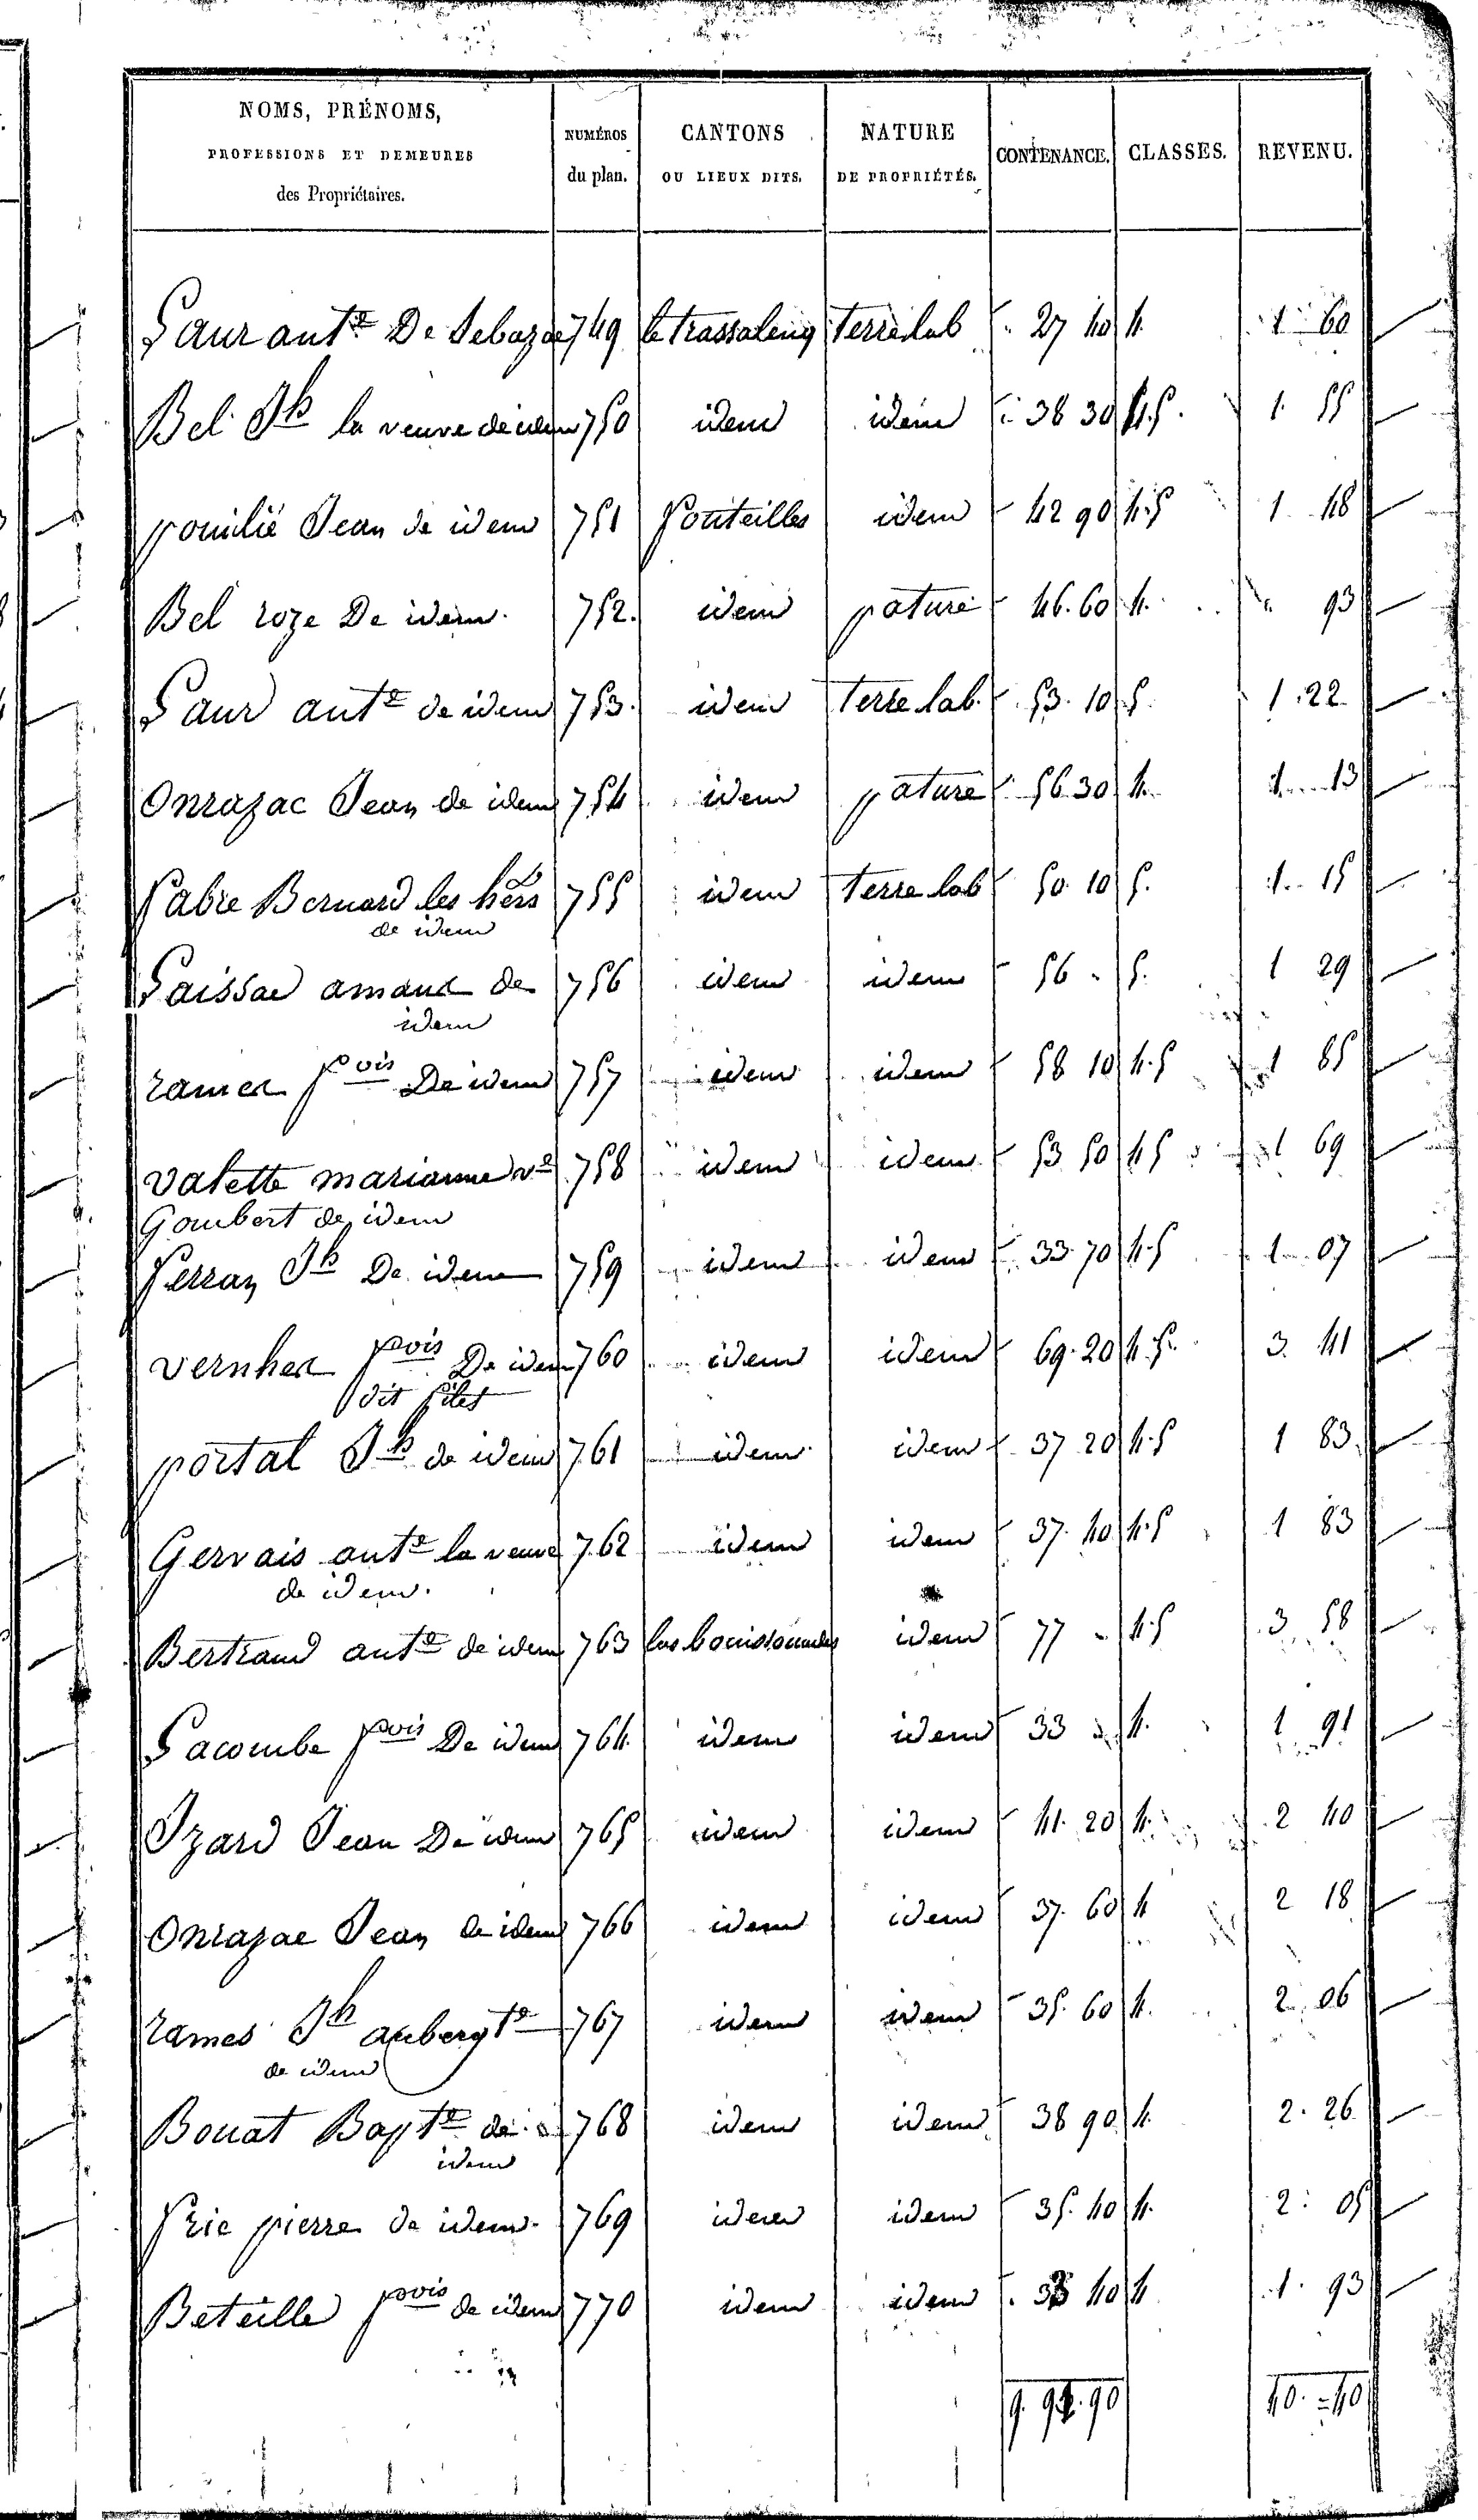 NOMS, PRÉNOMS,
PROFESSIONS ET DEMEURES
des Propriétaires.
NUMÉROS
du plan.
CANTONS
OU LIEUX DITS.
NATURE
DE PROPRIÉTÉS.
CONTENANCE.
CLASSES.
REVENU.
Saur ante De Sebazac 749 le trassaleng terre lab 27 40 4. 1 60
Bel Jh la veuve de idem 750 idem idem 38 30 4.5. 1. 55
poulié Jean de idem 751 fonteilles idem 42 90 4.5 1 48
Bel roze De idem. 752. idem pature 46.60 4. " 93
Saur ante de idem 753. idem terre lab. 53. 10 5. 1.22
Onrazac Jean de idem 754 idem pature 56 30 4. 1 13
fabre Bernard les hers 755 idem terre lab 50. 10 5. 1. 15
de idem
Saissac amans de 756 idem idem 56 " 5. 1 29
idem
rames fcois De idem 757 idem idem 58 10 4.5 1 85
valette marianne ve 758 idem idem 53 50 4 5 1 69
Gombert de idem
ferran Jh De idem 759 idem idem 33.70 4.5 1 07
vernhes fcois De idem 760 idem idem 69.20 4.5. 3. 41
dit
portal Jh de idem 761 idem idem 37 20 4.5 1 83.
Gervais ante la veuve 762 idem idem 37. 40 4.5 1 83
de idem.
Bertrand ante de idem 763 las bouissounades idem 77 " 4.5 3 58
Lacombe fcois De idem 764. idem idem 33 " 4. 1 91
Izard Jean De idem 765 idem idem 41. 20 4. 2 40
Onrazac Jean de idem 766 idem idem 37. 60 4 2 18
rames Jh aubergte 767 idem idem 35. 60 4. 2. 06
de idem
Bouat Bapte de 768 idem idem 38 90 4. 2. 26
idem
fric pierre de idem. 769 idem idem 35. 40 4. 2. 05
Beteille fcois de idem 770 idem idem 33 40 4 1. 93
9. 92. 90 40. 40